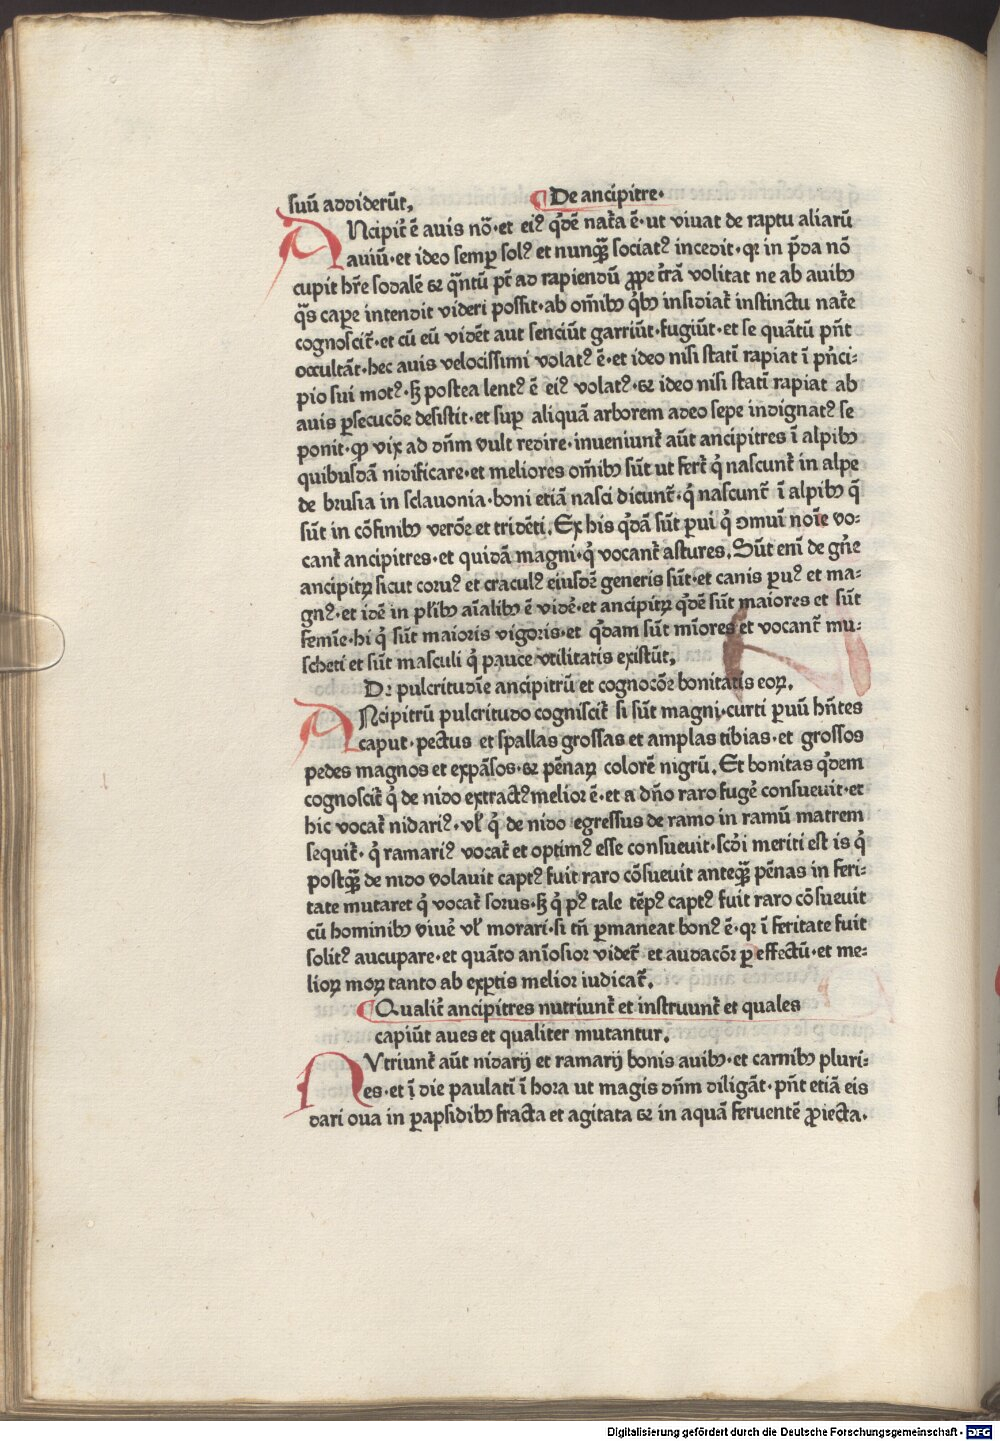 suū addiderūt, ¶De ancipitre.
ANcipit̄ ē avis nō·et eiꝰ q̄dē nat̄a ē·ut vivat de raptu aliarū
aviū·et ideo semp̲ solꝰ et nunqq̄ sociatꝰ incedit·qꝛ in p̄da nō
cupit hr̄e sodalē ⁊ q̄ntū pt̄ ad rapiendū ꝓpe t̄rā volitat ne ab avibꝫ
q̄s cape̲ intendit videri possit·ab om̄ibꝫ q̇bꝫ insidiat̄ instinctu nat̄e
cognoscit̄·et cū eū vidēt aut senciūt garriūt·fugiūt·et se quātū pn̄t
occultāt·hec avis velocissimi volatꝰ ē·et ideo nisi statī rapiat ī pn̄ci-
pio sui motꝰ·sꝫ postea lentꝰ ē eiꝰ volatꝰ·⁊ ideo nisi statī rapiat ab
avis ꝑsecucōe desistit·et sup̲ aliquā arborem adeo sepe indignatꝰ se
ponit·ꝙ vix ad dn̄m vult redire·inueniunt̄ aūt ancipitres ī alpibꝫ
quibusdā nidificare·et meliores om̄ibꝫ sūt ut fert̄ q̇ nascunt̄ in alpe
de brusia in sclauonia·boni etiā nasci dicunt̄·q̇ nascunt̄ ī alpibꝫ q̄
sūt in cōfinibꝫ verōe et tridēti. Ex his q̇dā sūt ꝑui q̇ ↄmuī noīe vo-
cant̄ ancipitres·et quidā magni·q̇ vocant̄ astures. Sūt enī de gn̄e
ancipitꝝ sicut coruꝰ et craculꝰ eiusdē generis sūt·et canis ꝑuꝰ et ma-
gnꝰ·et idē in pl̄ibꝫ aīalibꝫ ē videֿ·et ancipitꝝ q̇dē sūt maiores et sūt
femīe·hi q̇ sūt maioris vigoris·et q̇dam sūt mīores et vocant̄ mu-
scheti et sūt masculi q̇ pauce vtilitatis existūt.
De pulcritudīe ancipitrū et cognocōe bonitatis eoꝝ.
ANcipitrū pulcritudo cogniscit̄ si sūt magni·curti ꝑuū hn̄tes
caput·pectus et spallas grossas et amplas tibias·et grossos
pedes magnos et expāsos·⁊ pēnaꝝ colorē nigrū. Et bonitas q̇dem
cognoscit̄ q̇ de nido extractꝰ melior ē·et a dn̄o raro fugeֿ consueuit·et
hic vocat̄ nidariꝰ·vl̄ q̇ de nido egressus de ramo in ramū matrem
sequit̄·q̇ ramariꝰ vocat̄ et optimꝰ esse consueuit·scd̄i meriti est is q̇
postqq̄ de nido volauit captꝰ fuit raro cōsueuit anteqq̄ pēnas in feri-
tate mutaret q̇ vocat̄ sorus·sꝫ q̇ pꝰ tale tēpꝰ captꝰ fuit raro cōsueuit
cū hominibꝫ viueֿ vl̄ morari·si tn̄ ꝑmaneat bonꝰ ē·qꝛ ī feritate fuit
solitꝰ aucupare·et quāto anīosior videt̄ et audacōr ꝑ effectū·et me-
lioꝝ moꝝ tanto ab exꝑtis melior iudicat̄.
¶Qualit̄ ancipitres nutriunt̄ et instruunt̄ et quales
capiūt aues et qualiter mutantur.
NVtriunt̄ aūt nidarij et ramarij bonis avibꝫ·et carnibꝫ pluri-
es·et ī die paulatī ī hora ut magis dn̄m diligāt·pn̄t etiā eis
dari oua in ꝑapsidibꝫ fracta et agitata ⁊ in aquā feruentē ꝓiecta.
Digitalisierung gefördert durch die Deutsche Forschungsgemeinschaft - DFG